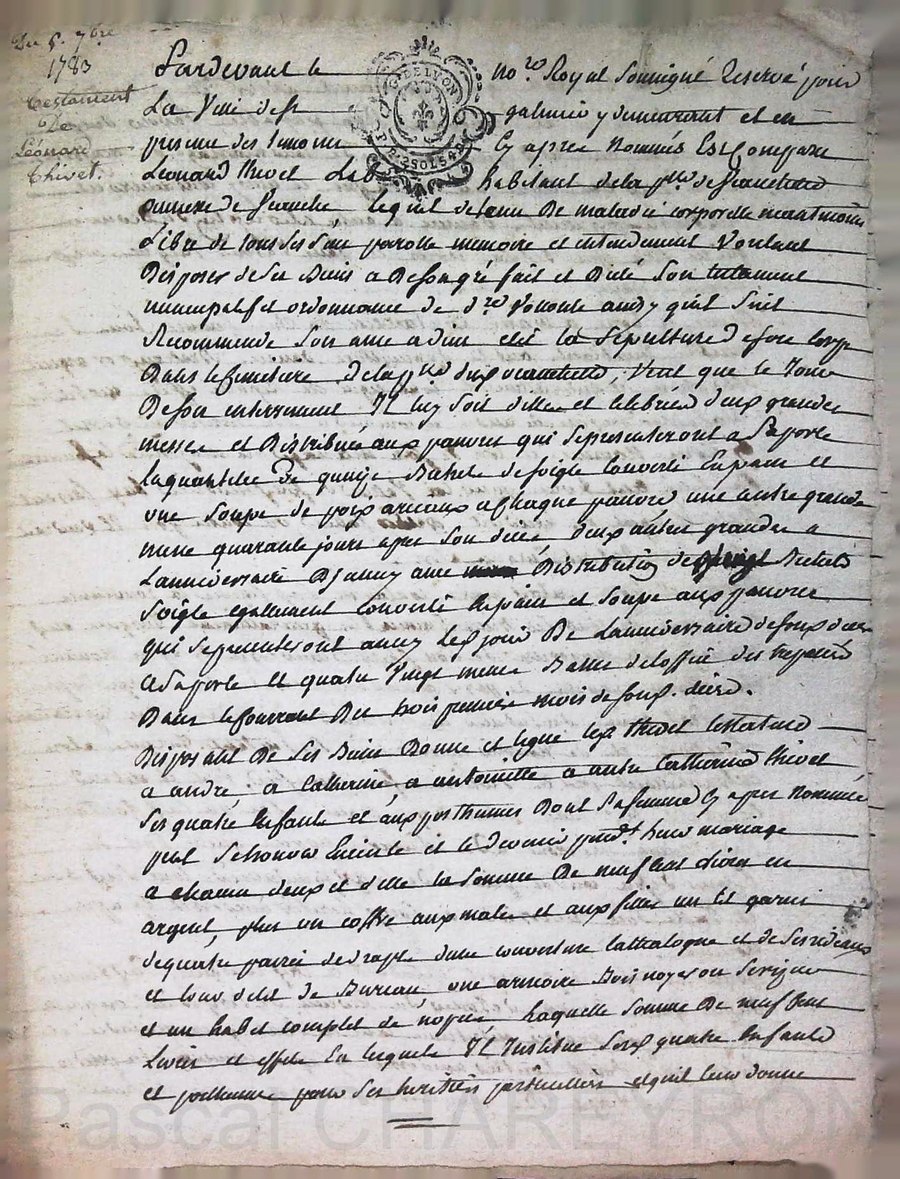 Du 5. 7bre
1783
testament
De
Léonard
thivet.
G. DE LYON
P. P. 2 SOLS 4 D.
Pardevant le no.re Royal Soussigné Reservé pour
La Ville de st galmier y demeurant et en
presence des temoins Cy apres nommés Est Comparu
Leonard thivet Lab habitant de la psse de
annexe de lequel detenu De maladie corporelle neantmoins
Libre de tous ses sens parolle memoire et entendement Voulant
Disposer de ses Biens a De son gré fait et Dicté Son testament
nuncupatif et ordonnance de d.re Volonté ainsy quil suit
Recommande Son ame a dieu elit la Sepulture de son Corps
Dans le Cimetiere de la psse , Veut que le Jour
De son enterrement Il luy soit dittes et celebrées deux grandes
messes et Distribué aux pauvres qui se presenteront a Sa porte
la quantité De quinze Bichets de soigle Converti En pain et
une Soupe de poix a Chaque pauvre une autre grande
messe quarante jours apres Son décés deux autres grandes a
Lanniversaire D'yceluy avec Distribution de Bichets
Soigle egalement Converti En pain et Soupe aux pauvres
qui se presenteront aussy le jour De Lanniversaire de son d. deces
a Sa porte et quatre Vingt messes Basses de loffice des trepassés
Dans le Courrant Des trois premiers mois de son d. décés.
Disposant De Ses Biens Donne et legue led. thivet testateur
a andré, a Catherine, a antoinette a autre Catherine thivet
Ses quatre Enfants et aux posthumes Dont Sa femme Cy apres Nommée
peut Se trouver Enceinte et le Devenir pend.t leur mariage
a chacun deux et delle la Somme De neuf cent livres en
argent, plus un coffre aux males et aux filles un lit garni
de quatre paires de draps dune couverture Cathalogne et de Ses rideaux
et tour de lit de Bureau, une armoire Bois noyer ou Serizier
et un habit complet de noyces Laquelle Somme De neuf Cent
Livres et effets En lesquels Il Institue Sesd. quatre Enfants
et posthumes pour Ses heritiers particuliers et quil leur donne
Pascal CHAREYRON